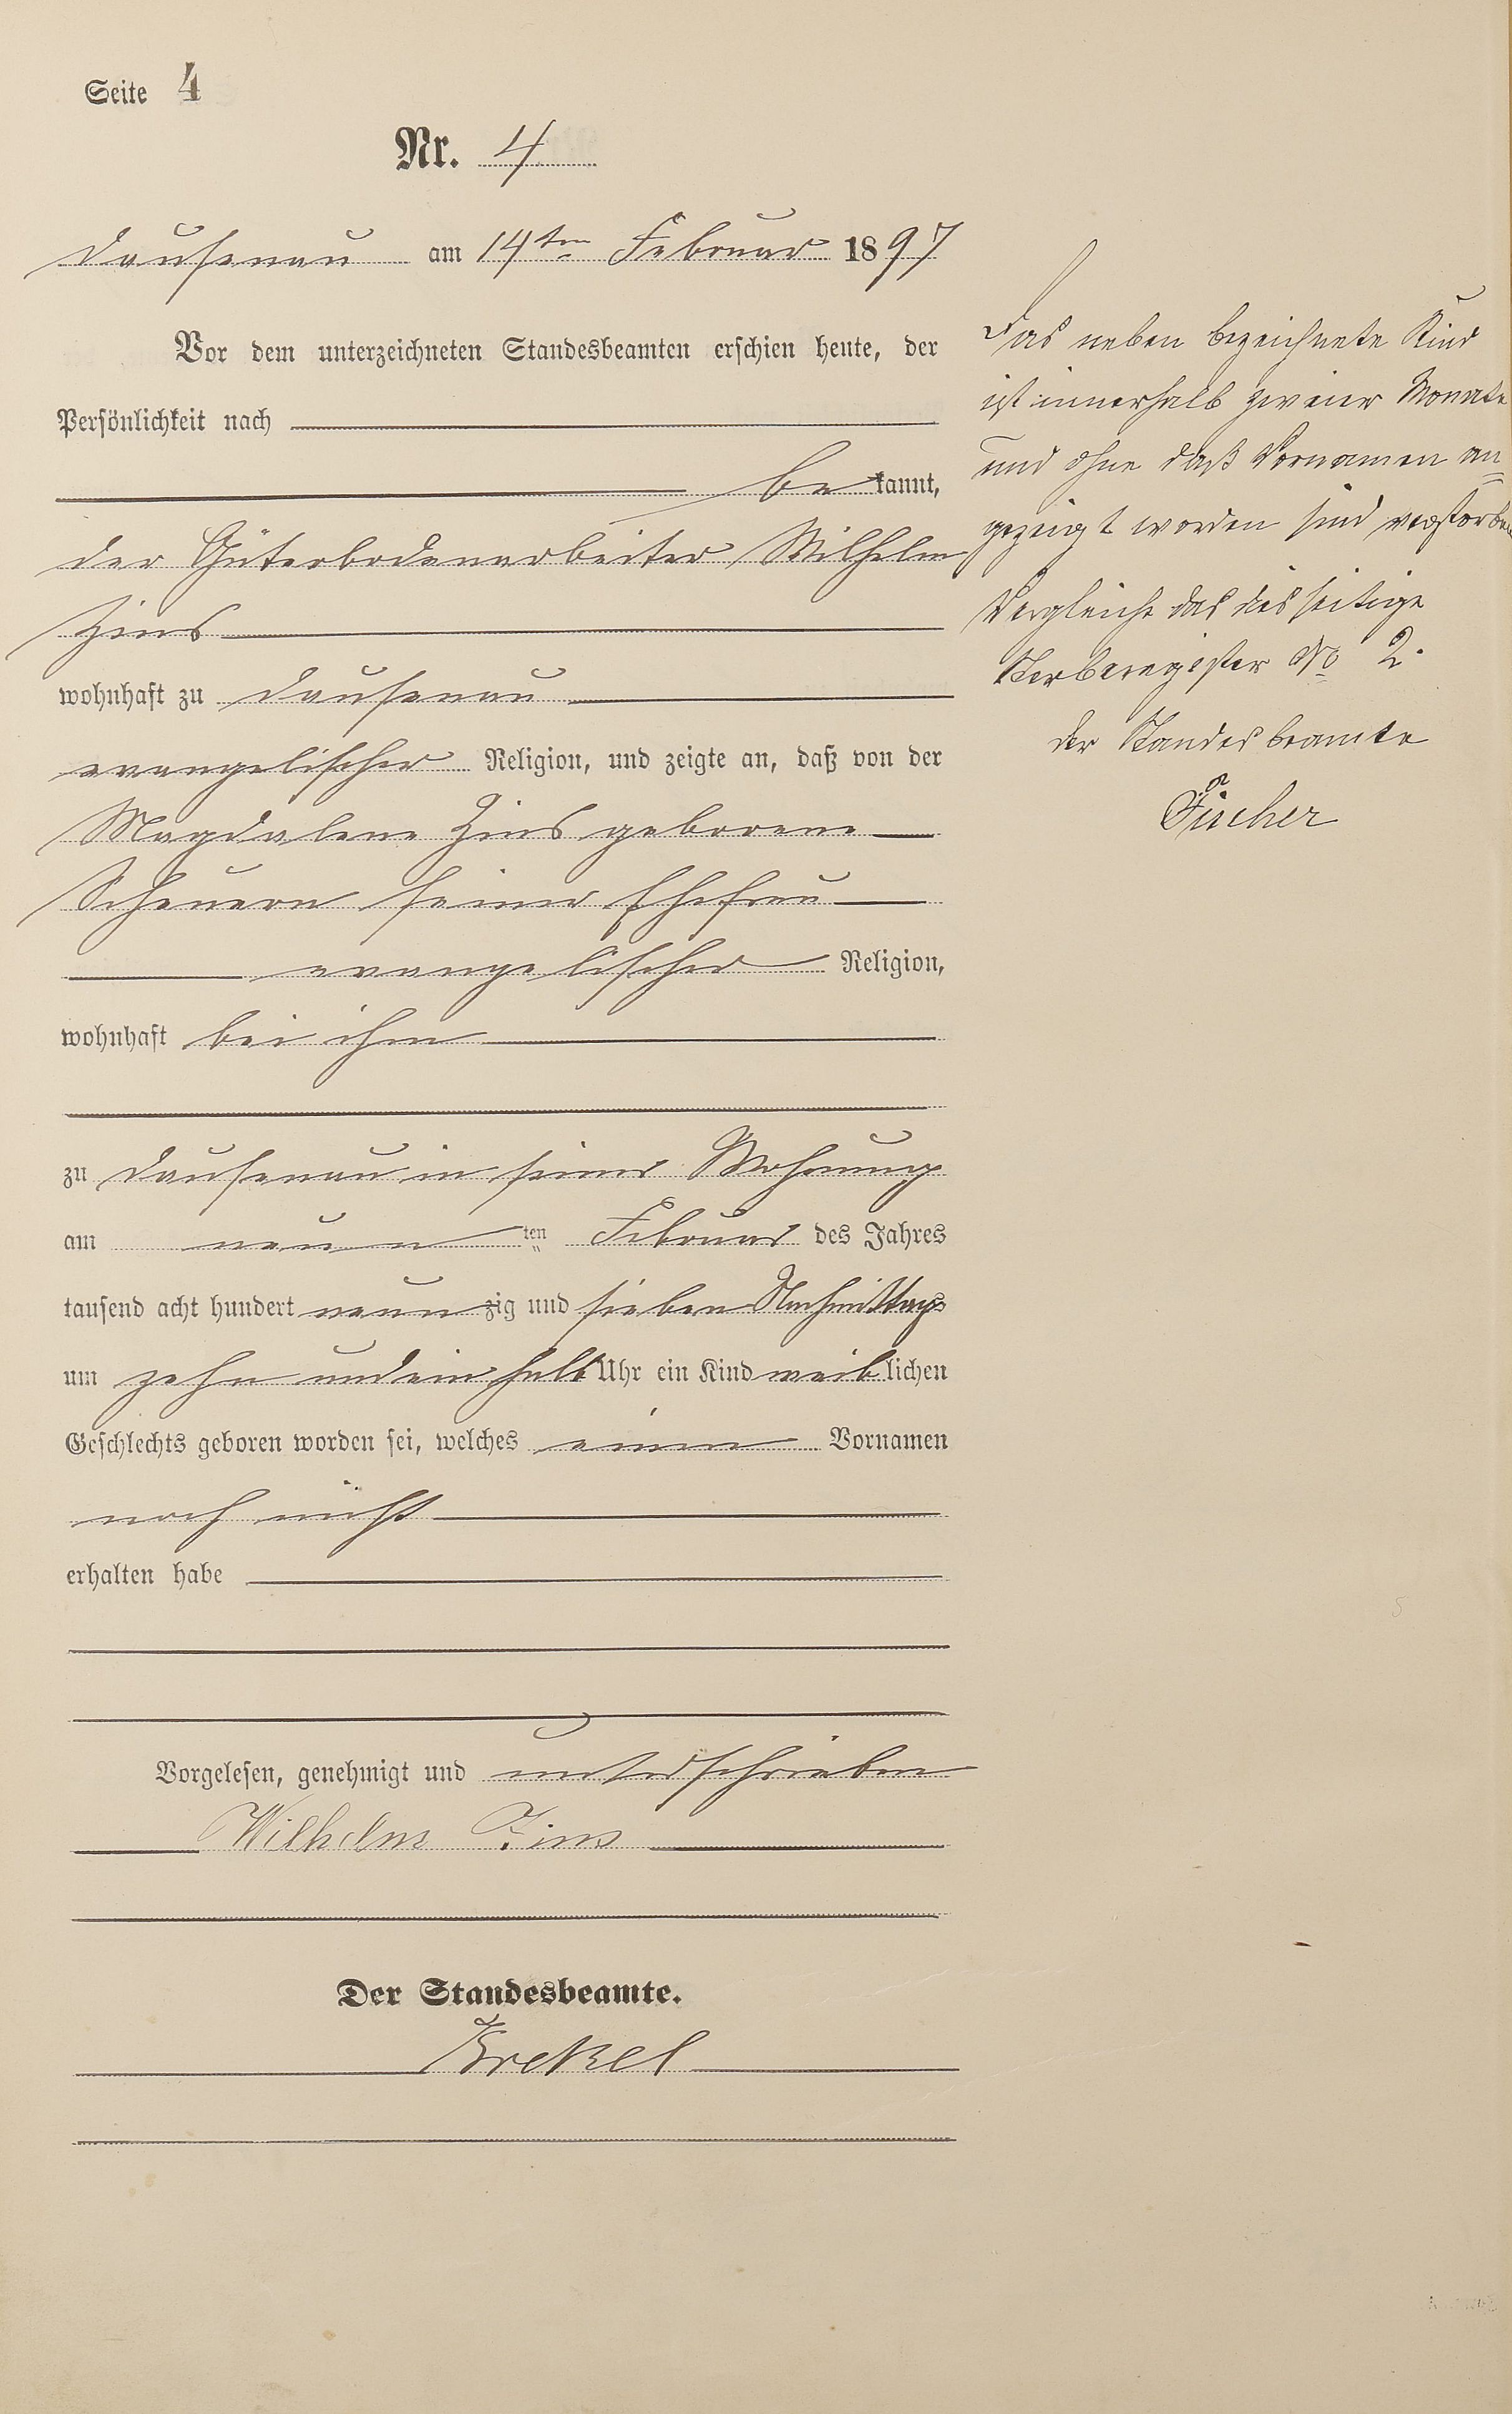 Seite 4
Nr. 4
Dausenau am 14ten Februar 1897
Vor dem unterzeichneten Standesbeamten erschien heute, der
Persönlichkeit nach
bekannt,
der Güterbodenarbeiter Wilhelm
Zins
wohnhaft zu Dausenau
evangelischer Religion, und zeigte an, daß von der
Magdalene Zins geborene
Scheuern seiner Ehefrau
evangelischer Religion,
wohnhaft bei ihm
zu Dausenau in seiner Wohnung
am neunten Februar des Jahres
tausend acht hundert neunzig und sieben Nachmittags
um zehn und ein halb Uhr ein Kind weiblichen
Geschlechts geboren worden sei, welches einen Vornamen
noch nicht
erhalten habe
Vorgelesen, genehmigt und unterschrieben
Wilhelm Zins
Der Standesbeamte.
Krekel
Das neben bezeichnete Kind
ist innerhalb zweier Monate
und ohne daß Vornamen an
gezeigt worden sind verstorben
Vergleiche das diesseitige
Sterberegister No 2.
Der Standesbeamte
Fischer